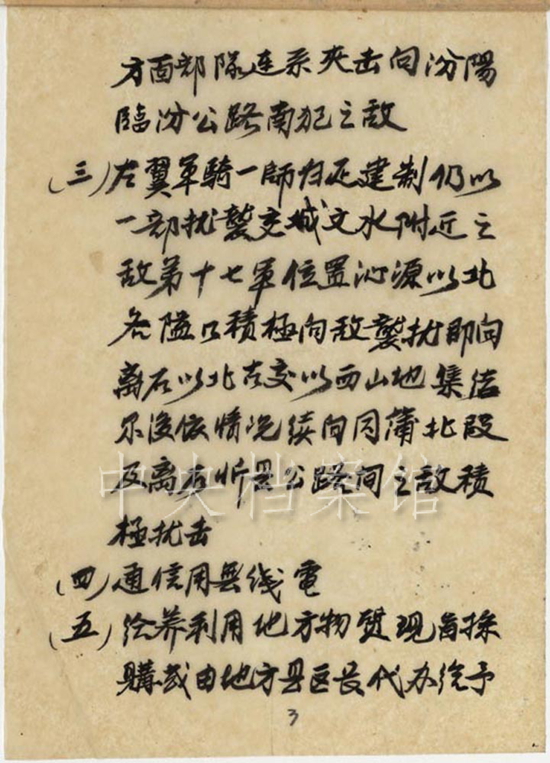 方面部隊連系夾击向汾陽
臨汾公路南犯之敌
(三)左翼軍騎一師归还建制仍以
一部扰襲交城文水附近之
敌第十七軍位置沁源以北
各隘口積極向敌襲扰即向
离石以北古交以西山地集结
尔後依情况续向同蒲北段
及离石忻县公路间之敌積
極扰击
(四)通信用無线電
(五)给养利用地方物質现旨採
購或由地方县区長代办给予
3
中央档案馆